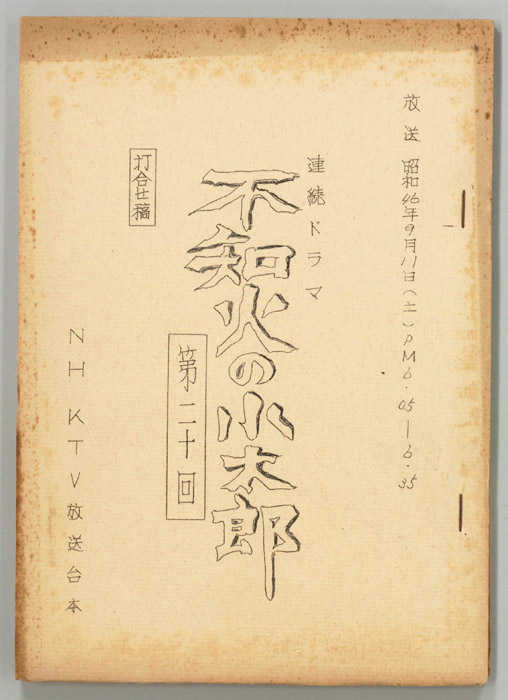 放送 昭和46年9月11日(土)PM6.05―6.35
連続ドラマ
不知火の小太郎
第二十回
打合せ稿
NHKTV放送台本